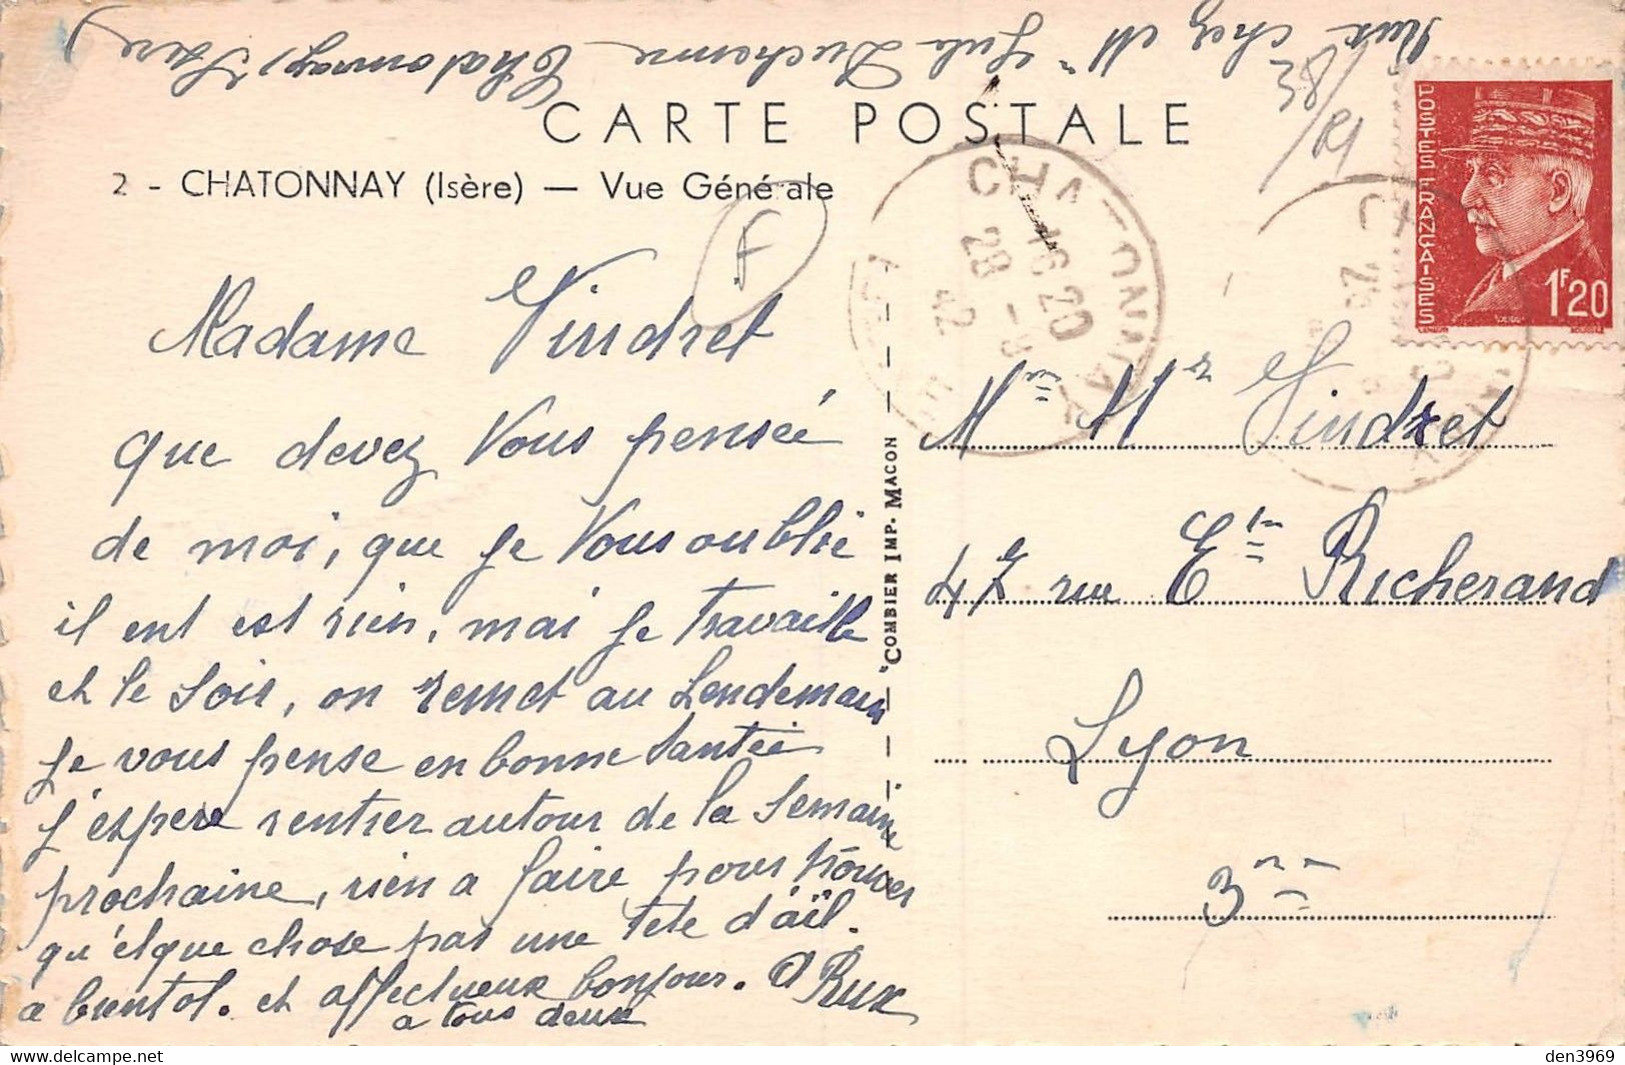 Rux chez Mme Duchenne Chatonnay, Isère
CARTE POSTALE
2 - CHATONNAY (Isère) — Vue Générale
F
CHATONNAY
16 20
28 - 8
42
POSTES FRANÇAISES
1F20
Madame Vindret
que devez Vous penseé
de moi, que je Vous oublié
il ent est rien, mai je travaille
et le soir, on remet au Lendemain
je vous pense en bonne santeé
j'espere rentrer autour de la semaine
prochaine, rien a faire pour trouver
qu'élque chose pas une tete d'aïl.
a bientot. et affectueux bonjour. A Rux
a tous deux
Mme Mr Vindret
47 rue Etne Richerand
Lyon
3me
"COMBIER IMP. MACON
delcampe.net
den3969